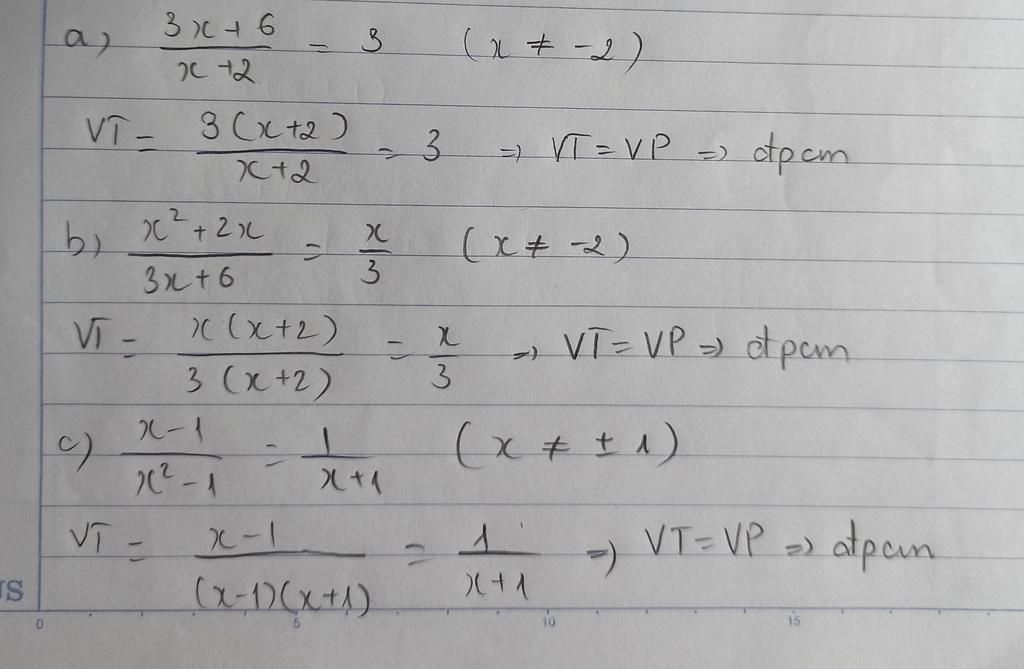 a) (3x+6)/(x+2) = 3 (x ≠ -2)
VT = 3(x+2)/(x+2) = 3 => VT = VP => đpcm
b) (x²+2x)/(3x+6) = x/3 (x ≠ -2)
VT = x(x+2)/3(x+2) = x/3 => VT = VP => đpcm
c) (x-1)/(x²-1) = 1/(x+1) (x ≠ ±1)
VT = (x-1)/(x-1)(x+1) = 1/(x+1) => VT = VP => đpcm
US
0 5 10 15